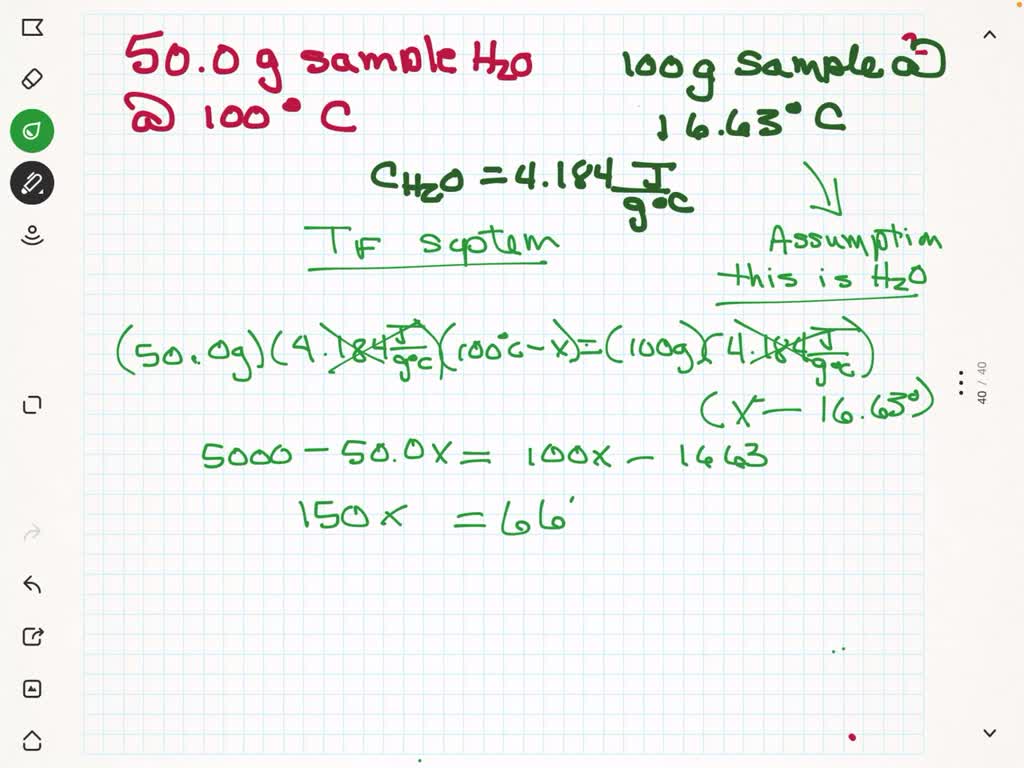 50.0 g sample H2O
@ 100° C
100g sample @
16.63° C
CH2O = 4.184 J/g°C
TF syptem
Assumption
this is H2O
(50.0g)(4.184 J/g°C)(100°C-x)=(100g)(4.184 J/g°C)
(x - 16.63°)
5000 - 50.0x = 100x - 1663
150x = 66
40 / 40